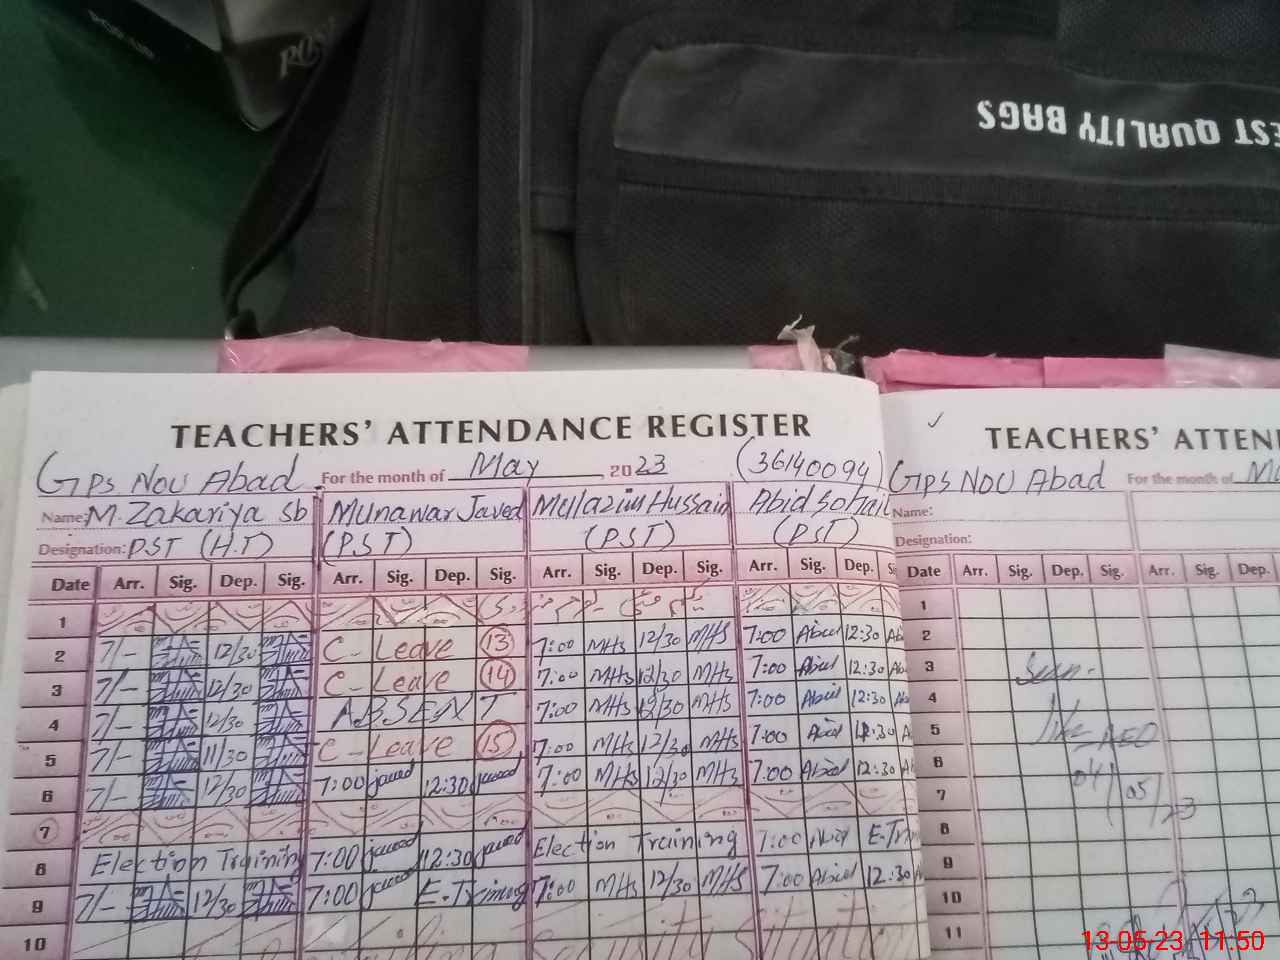 BEST QUALITY BAGS
TEACHERS' ATTENDANCE REGISTER
GPS Nou Abad For the month of May 2023 (36140094)
Name: M. Zakariya sb Munawar Javed Mullazim Hussain Abid Sohail
Designation: PST (H.T) (PST) (PST) (PST)
Date Arr. Sig. Dep. Sig. Arr. Sig. Dep. Sig. Arr. Sig. Dep. Sig. Arr. Sig. Dep. Si
1
2 7/- 12/30 C- Leave 13 7:00 MHs 12/30 MHS 7:00 Abid 12:30 Abi
3 7/- 12/30 C- Leave 14 7:00 MHs 12/30 MHs 7:00 Abid 12:30 Ab
4 7/- 12/30 ABSENT 7:00 MHs 12/30 MHs 7:00 Abid 12:30 Ab
5 7/- 11/30 C- Leave 15 7:00 MHs 12/30 MHs 7:00 Abid 11:30 A
6 7/- 12/30 7:00 javed 12:30 javed 7:00 MHs 12/30 MHs 7:00 Abid 12:30 A
7
8 Election Training 7:00 javed 12:30 javed Election Training 7:00 Abid E-Tr
9 7/- 12/30 7:00 javed E-Training 7:00 MHs 12/30 MHS 7:00 Abid 12:30 A
10 Security Situation
TEACHERS' ATTEN
GPS Nou Abad For the month of Ma
Name:
Designation:
Date Arr. Sig. Dep. Sig. Arr. Sig. Dep.
1
2
3 Seen.
4
5 AEO
6 04/05/23
7
8
9
10
11
13-05-23 11:50